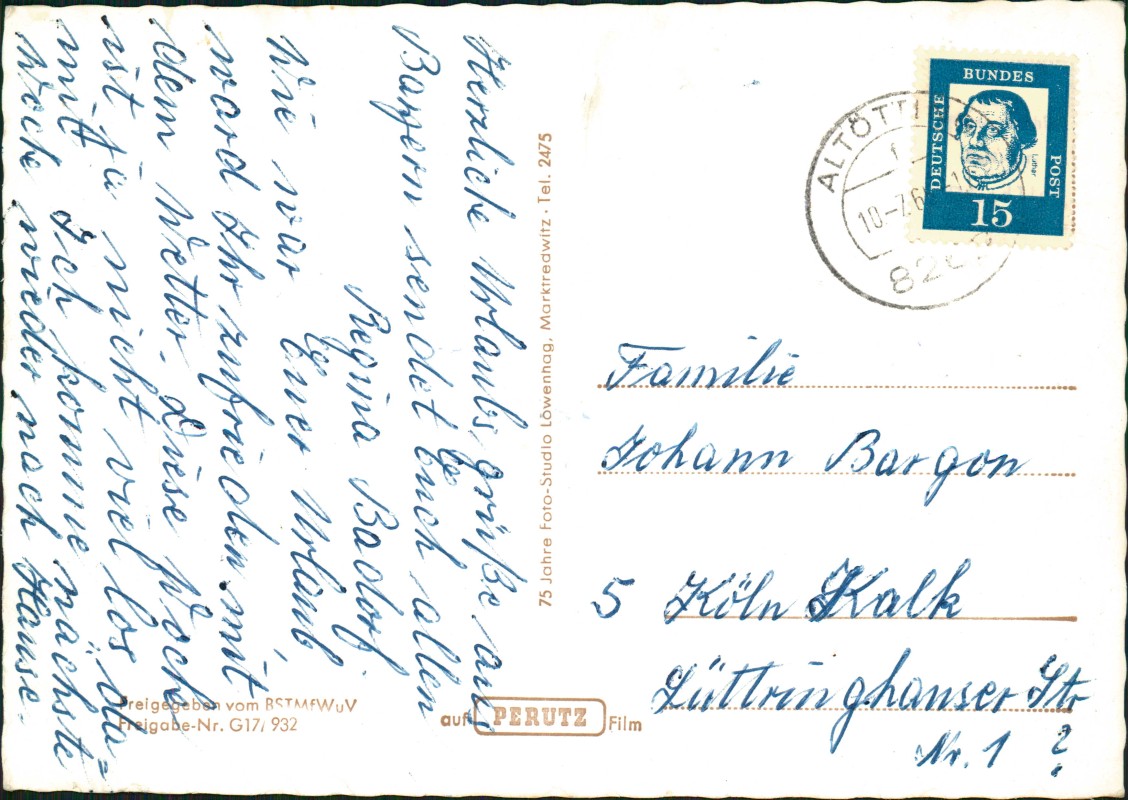 Herzliche Urlaubsgrüße aus
Bayern sendet Euch allen
Regina Badorf.
Wie war Euer Urlaub,
ward Ihr zufrieden mit
dem Wetter. Diese Woche
ist ja nicht viel los da=
mitt. Ich komme nächste
Woche wieder nach Hause.
Freigegeben vom BSTMfWuV
Freigabe-Nr. G17/932
auf PERUTZ Film
75 Jahre Foto-Studio Löwenhag, Marktredwitz · Tel. 2475
DEUTSCHE
BUNDES
POST
Luther
15
ALTÖTT
10-7.6
826
Familie
Johann Bargon
5 Köln Kalk
Lüttringhauser Str
Nr. 1 ?